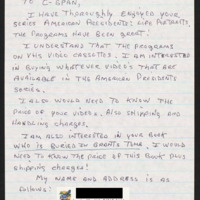 TO C-SPAN,
I HAVE THOROUGHLY ENJOYED YOUR
SERIES AMERICAN PRESIDENTS: LIFE PORTRAITS.
THE PROGRAMS HAVE BEEN GREAT!
I UNDERSTAND THAT THE PROGRAMS
ON VHS VIDEO CASSETTES. I AM INTERESTED
IN BUYING WHATEVER VIDEOS THAT ARE
AVAILABLE IN THE AMERICAN PRESIDENTS
SERIES.
I ALSO WOULD NEED TO KNOW THE
PRICE OF YOUR VIDEOS. ALSO SHIPPING AND
HANDLING CHARGES.
I AM ALSO INTERESTED IN YOUR BOOK
WHO IS BURIED IN GRANT'S TOMB. I WOULD
NEED TO KNOW THE PRICE OF THIS BOOK PLUS
SHIPPING CHARGES!
MY NAME AND ADDRESS IS AS
FOLLOWS!